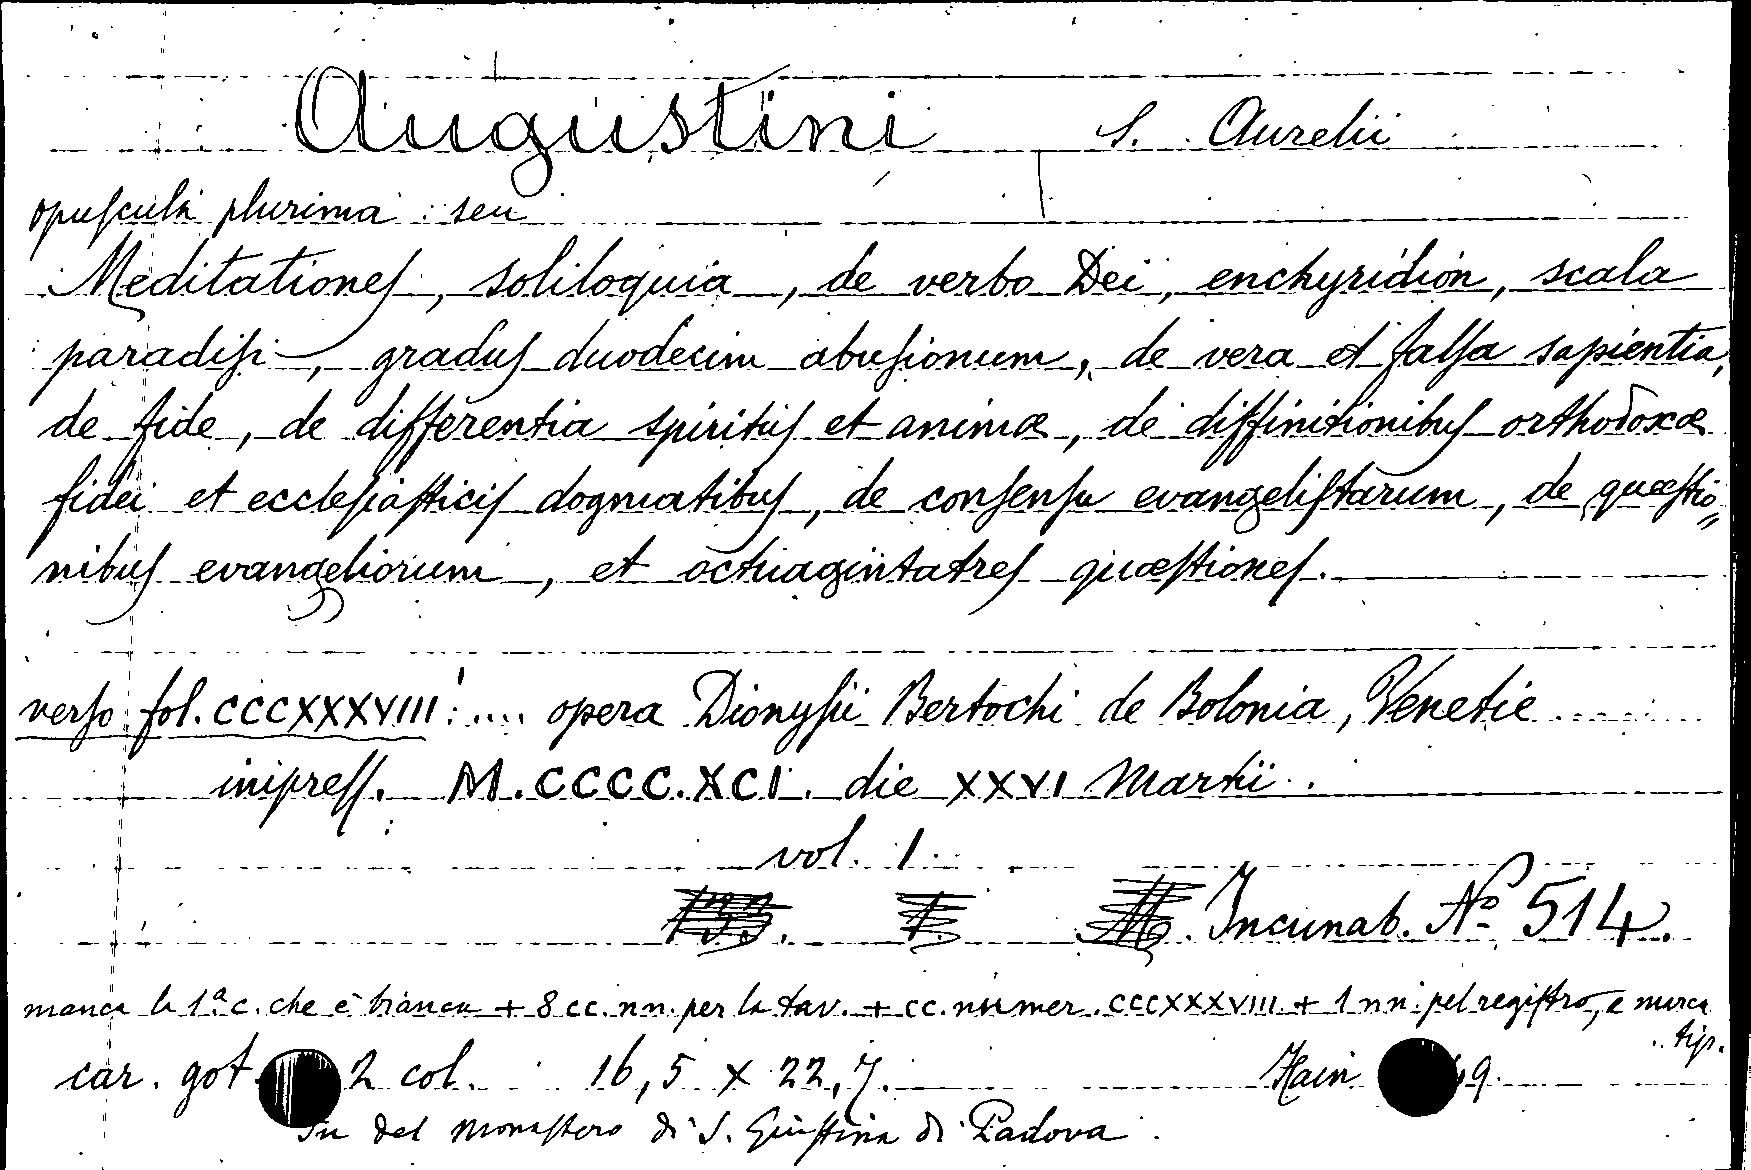 Augustini S. Aurelii
opuſcula plurima : seu
Meditationeſ, soliloquia, de verbo Dei, enchyridion, scala
paradiſi, graduſ duodecim abuſionum, de vera et falſa sapientia,
de fide, de differentia spirituſ et animæ, de diffinitionibuſ orthodoxæ
fidei et eccleſiaſticiſ dogmatibuſ, de conſenſu evangeliſtarum, de quæſtio„
nibuſ evangeliorum, et octuagintatreſ quæſtioneſ.
verſo fol. CCCXXXVIII: .... opera Dionyſii Bertochi de Bolonia, Venetie ......
impreſſ. M.CCCC.XCI. die XXVI Martii.
vol. 1.
Incunab. Nº 514.
manca la 1ª c. che è bianca + 8 cc. nn. per la tav. + cc. numer. CCCXXXVIII + 1 nn. pel regiſtro, e marca
tip.
car. got. 2 col. 16,5 x 22,7. Hain 49.
Fu del monaſtero di S. Giuſtina di Padova.